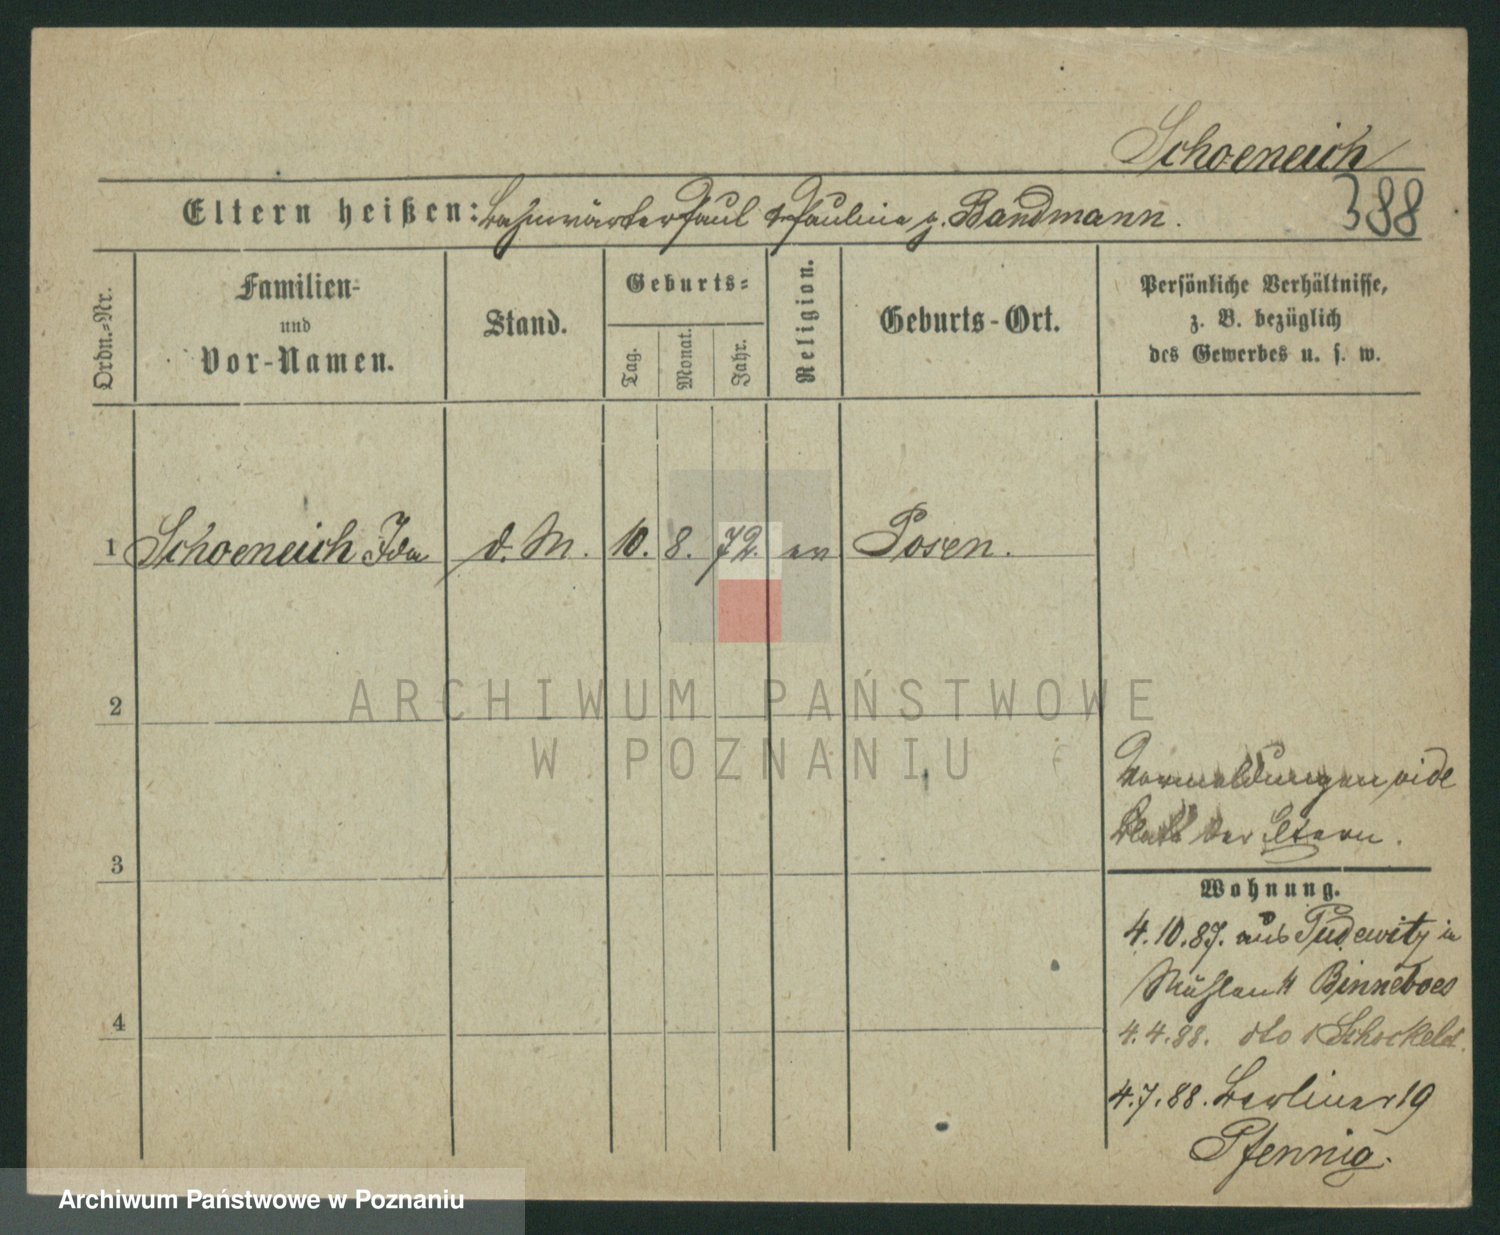 Schoeneich
388
Eltern heißen: Bahnwärter Paul & Pauline g. Bandmann.
Ordn.-Nr.
Familien-
und
Vor-Namen.
Stand.
Geburts-
Tag.
Monat.
Jahr.
Religion.
Geburts-Ort.
Persönliche Verhältnisse,
z. B. bezüglich
des Gewerbes u. s. w.
1 Schoeneich Ida d. M. 10. 8. 72. ev Posen.
2
ARCHIWUM PAŃSTWOWE
W POZNANIU
Vormeldungen vide
Blatt der Eltern.
3
Wohnung.
4.10.87. aus Pudewitz in
Mühlen 4 Binneboes
4
4.4.88. dto Schockelt.
4.7.88. Berliner 19
Pfennig.
Archiwum Państwowe w Poznaniu